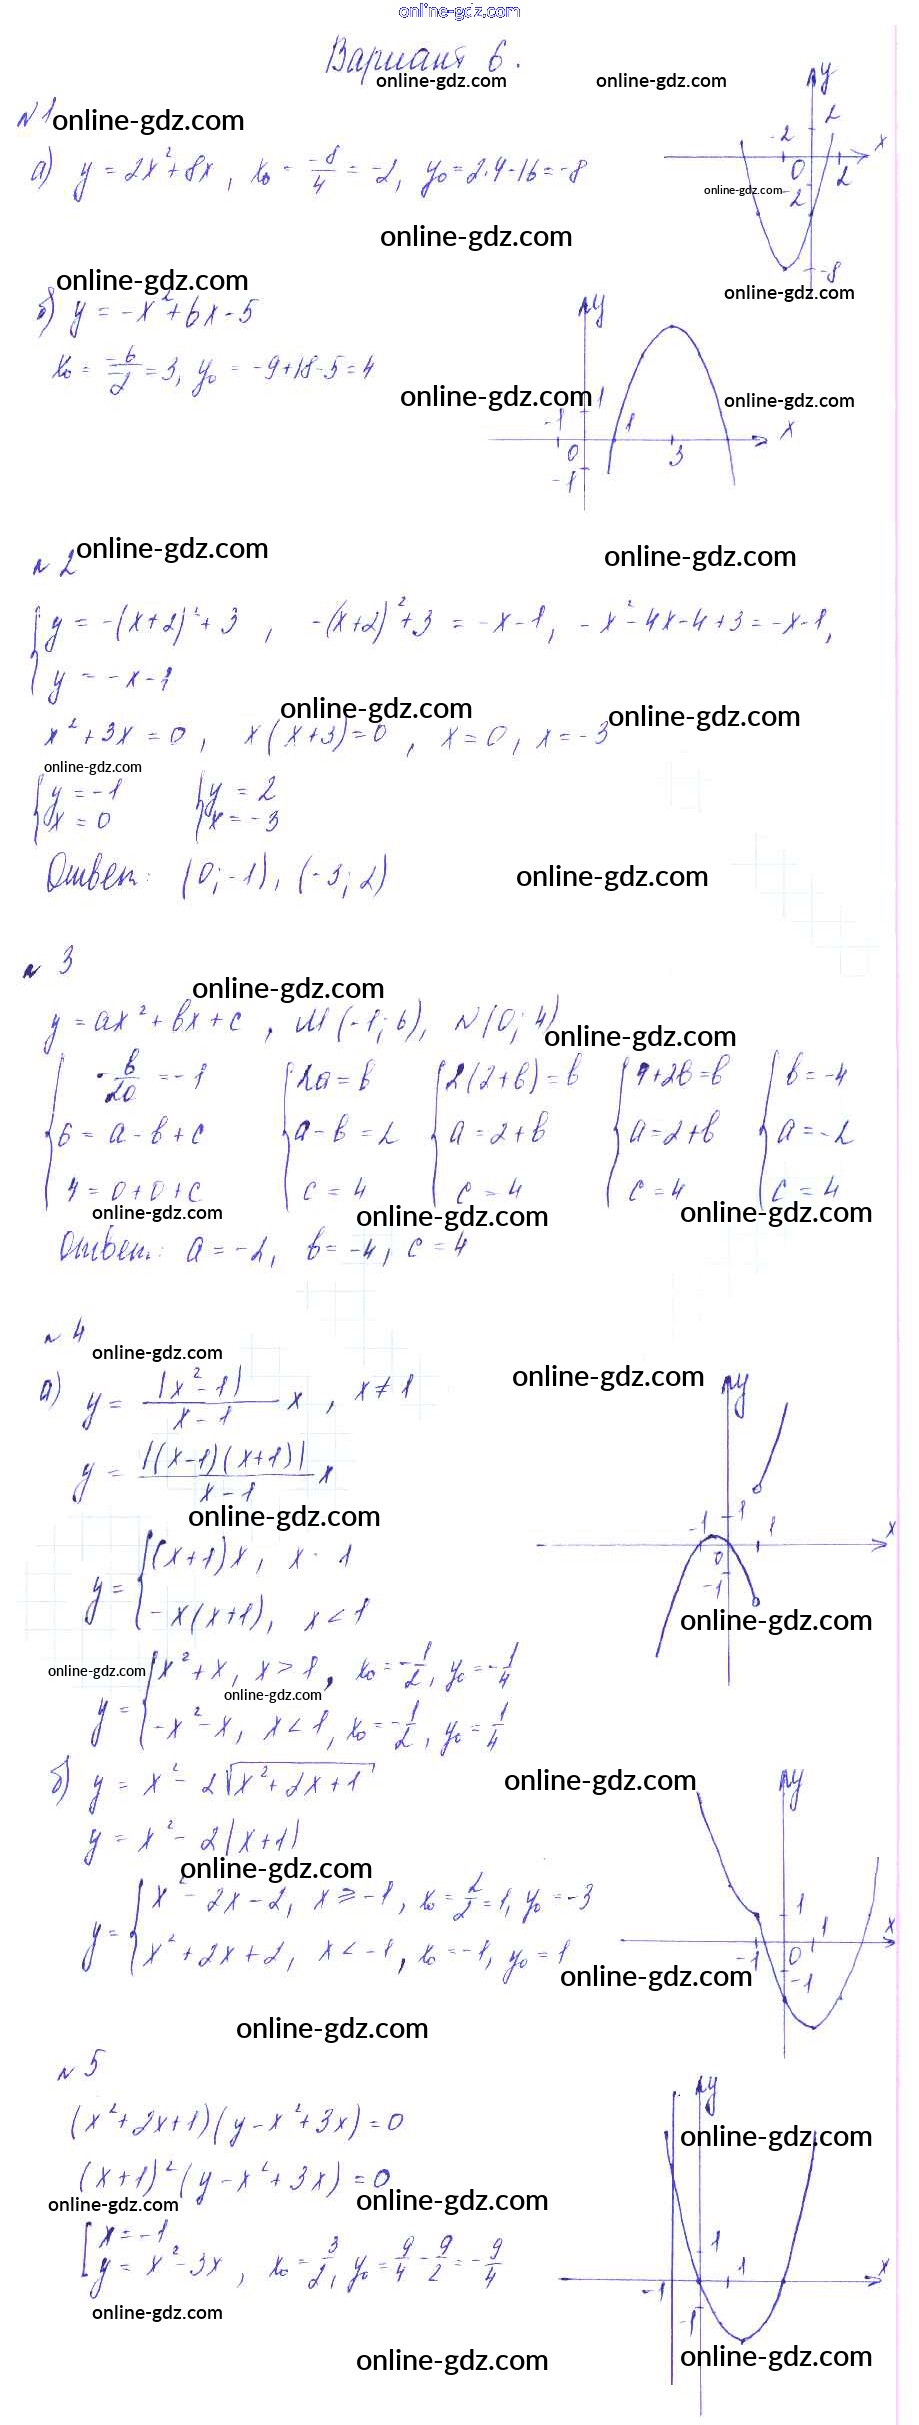 online-gdz.com
Вариант 6.
online-gdz.com online-gdz.com
№1 online-gdz.com
а) y = 2x²+8x, x₀ = -8/4 = -2, y₀ = 2·4-16 = -8
y
2
-2
x
0
2
online-gdz.com
-2
-8
online-gdz.com
online-gdz.com
online-gdz.com
б) y = -x²+6x-5
x₀ = -6/-2 = 3, y₀ = -9+18-5 = 4
y
online-gdz.com
online-gdz.com
1
-1
1
x
0
3
-1
№2 online-gdz.com
online-gdz.com
{ y = -(x+2)²+3, -(x+2)²+3 = -x-1, -x²-4x-4+3 = -x-1,
y = -x-1
online-gdz.com online-gdz.com
x²+3x=0, x(x+3)=0, x=0, x=-3
online-gdz.com
{ y=-1 { y=2
x=0 x=-3
Ответ: (0;-1), (-3;2)
online-gdz.com
№3
online-gdz.com
y = ax²+bx+c, M(-1;6), N(0;4)
online-gdz.com
{ -b/2a = -1 { 2a=b { 2(2+b)=b { 4+2b=b { b=-4
6 = a-b+c a-b=2 a=2+b a=2+b a=-2
4 = 0+0+c c=4 c=4 c=4 c=4
online-gdz.com online-gdz.com online-gdz.com
Ответ: a=-2, b=-4, c=4
№4
online-gdz.com
online-gdz.com
а) y = |x²-1|/(x-1) x, x≠1
y = |(x-1)(x+1)|/(x-1) x
online-gdz.com
y
-1
1
1
x
0
-1
y = { (x+1)x, x 1
-x(x+1), x<1
online-gdz.com
online-gdz.com
y = { x²+x, x>1, x₀ = -1/2, y₀ = -1/4
online-gdz.com
-x²-x, x<1, x₀ = -1/2, y₀ = 1/4
б) y = x²-2√(x²+2x+1)
online-gdz.com
y = x²-2|x+1|
online-gdz.com
y = { x²-2x-2, x≥-1, x₀ = 2/2 = 1, y₀ = -3
x²+2x+2, x<-1, x₀ = -1, y₀ = 1
y
1
1
x
-1
0
-1
online-gdz.com
online-gdz.com
№5
(x²+2x+1)(y-x²+3x)=0
online-gdz.com
(x+1)²(y-x²+3x)=0
online-gdz.com online-gdz.com
[ x=-1
y = x²-3x, x₀ = 3/2, y₀ = 9/4 - 9/2 = -9/4
y
1
1
x
-1
-1
online-gdz.com
online-gdz.com online-gdz.com